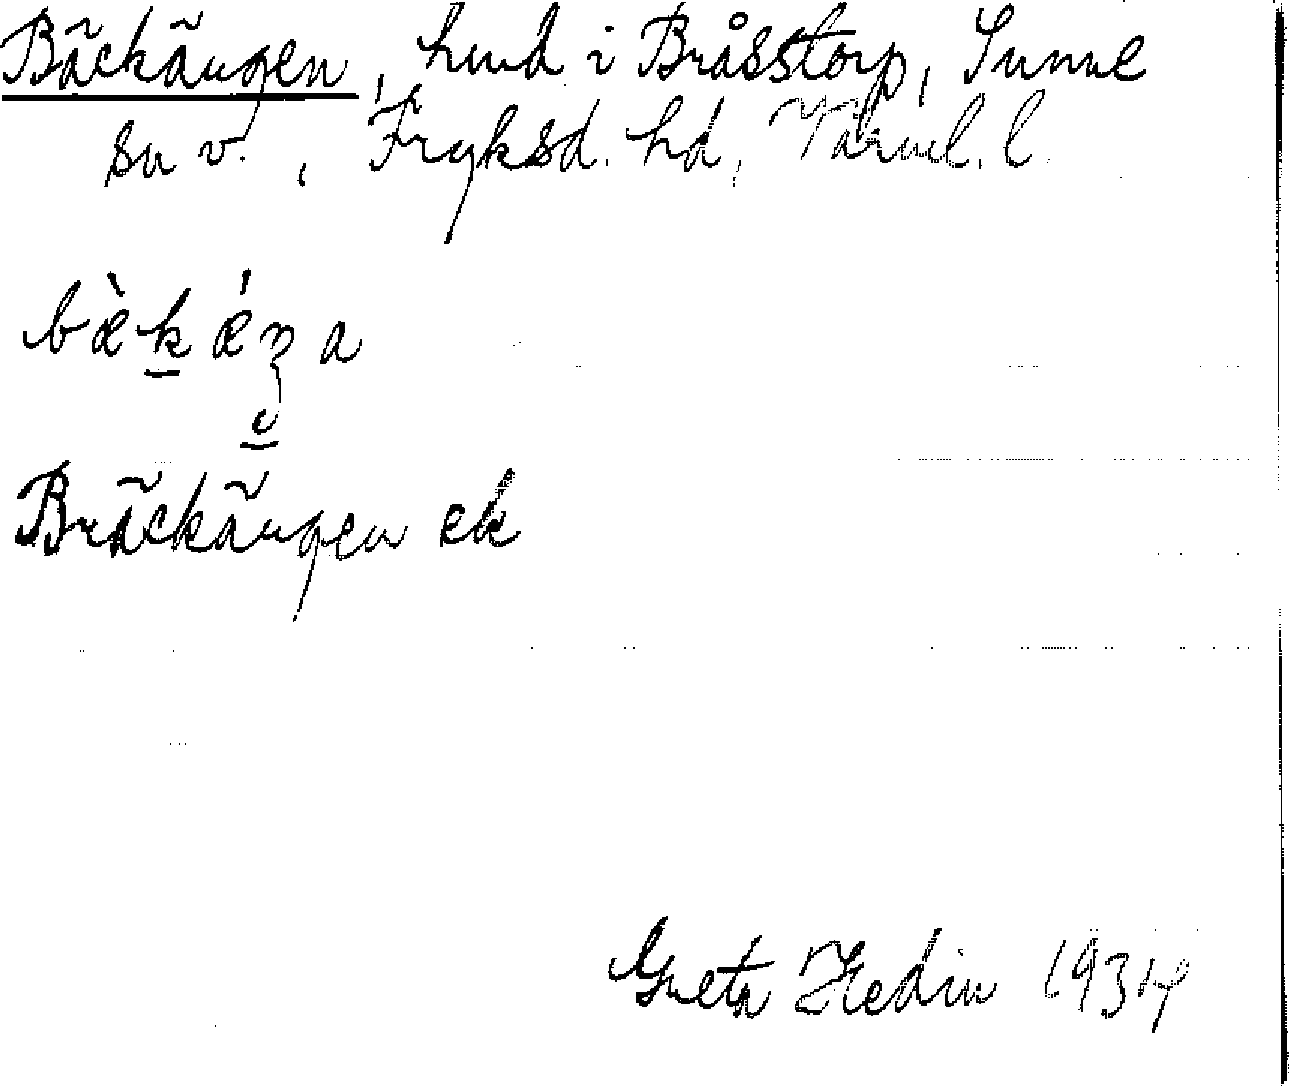 Bäckängen, hmd i Bråsstorp, Sunne
sn v., Fryksd. hd, Värml. l.
bæ̀kǽŋa
Bräckängen ek
Greta Hedin 1934